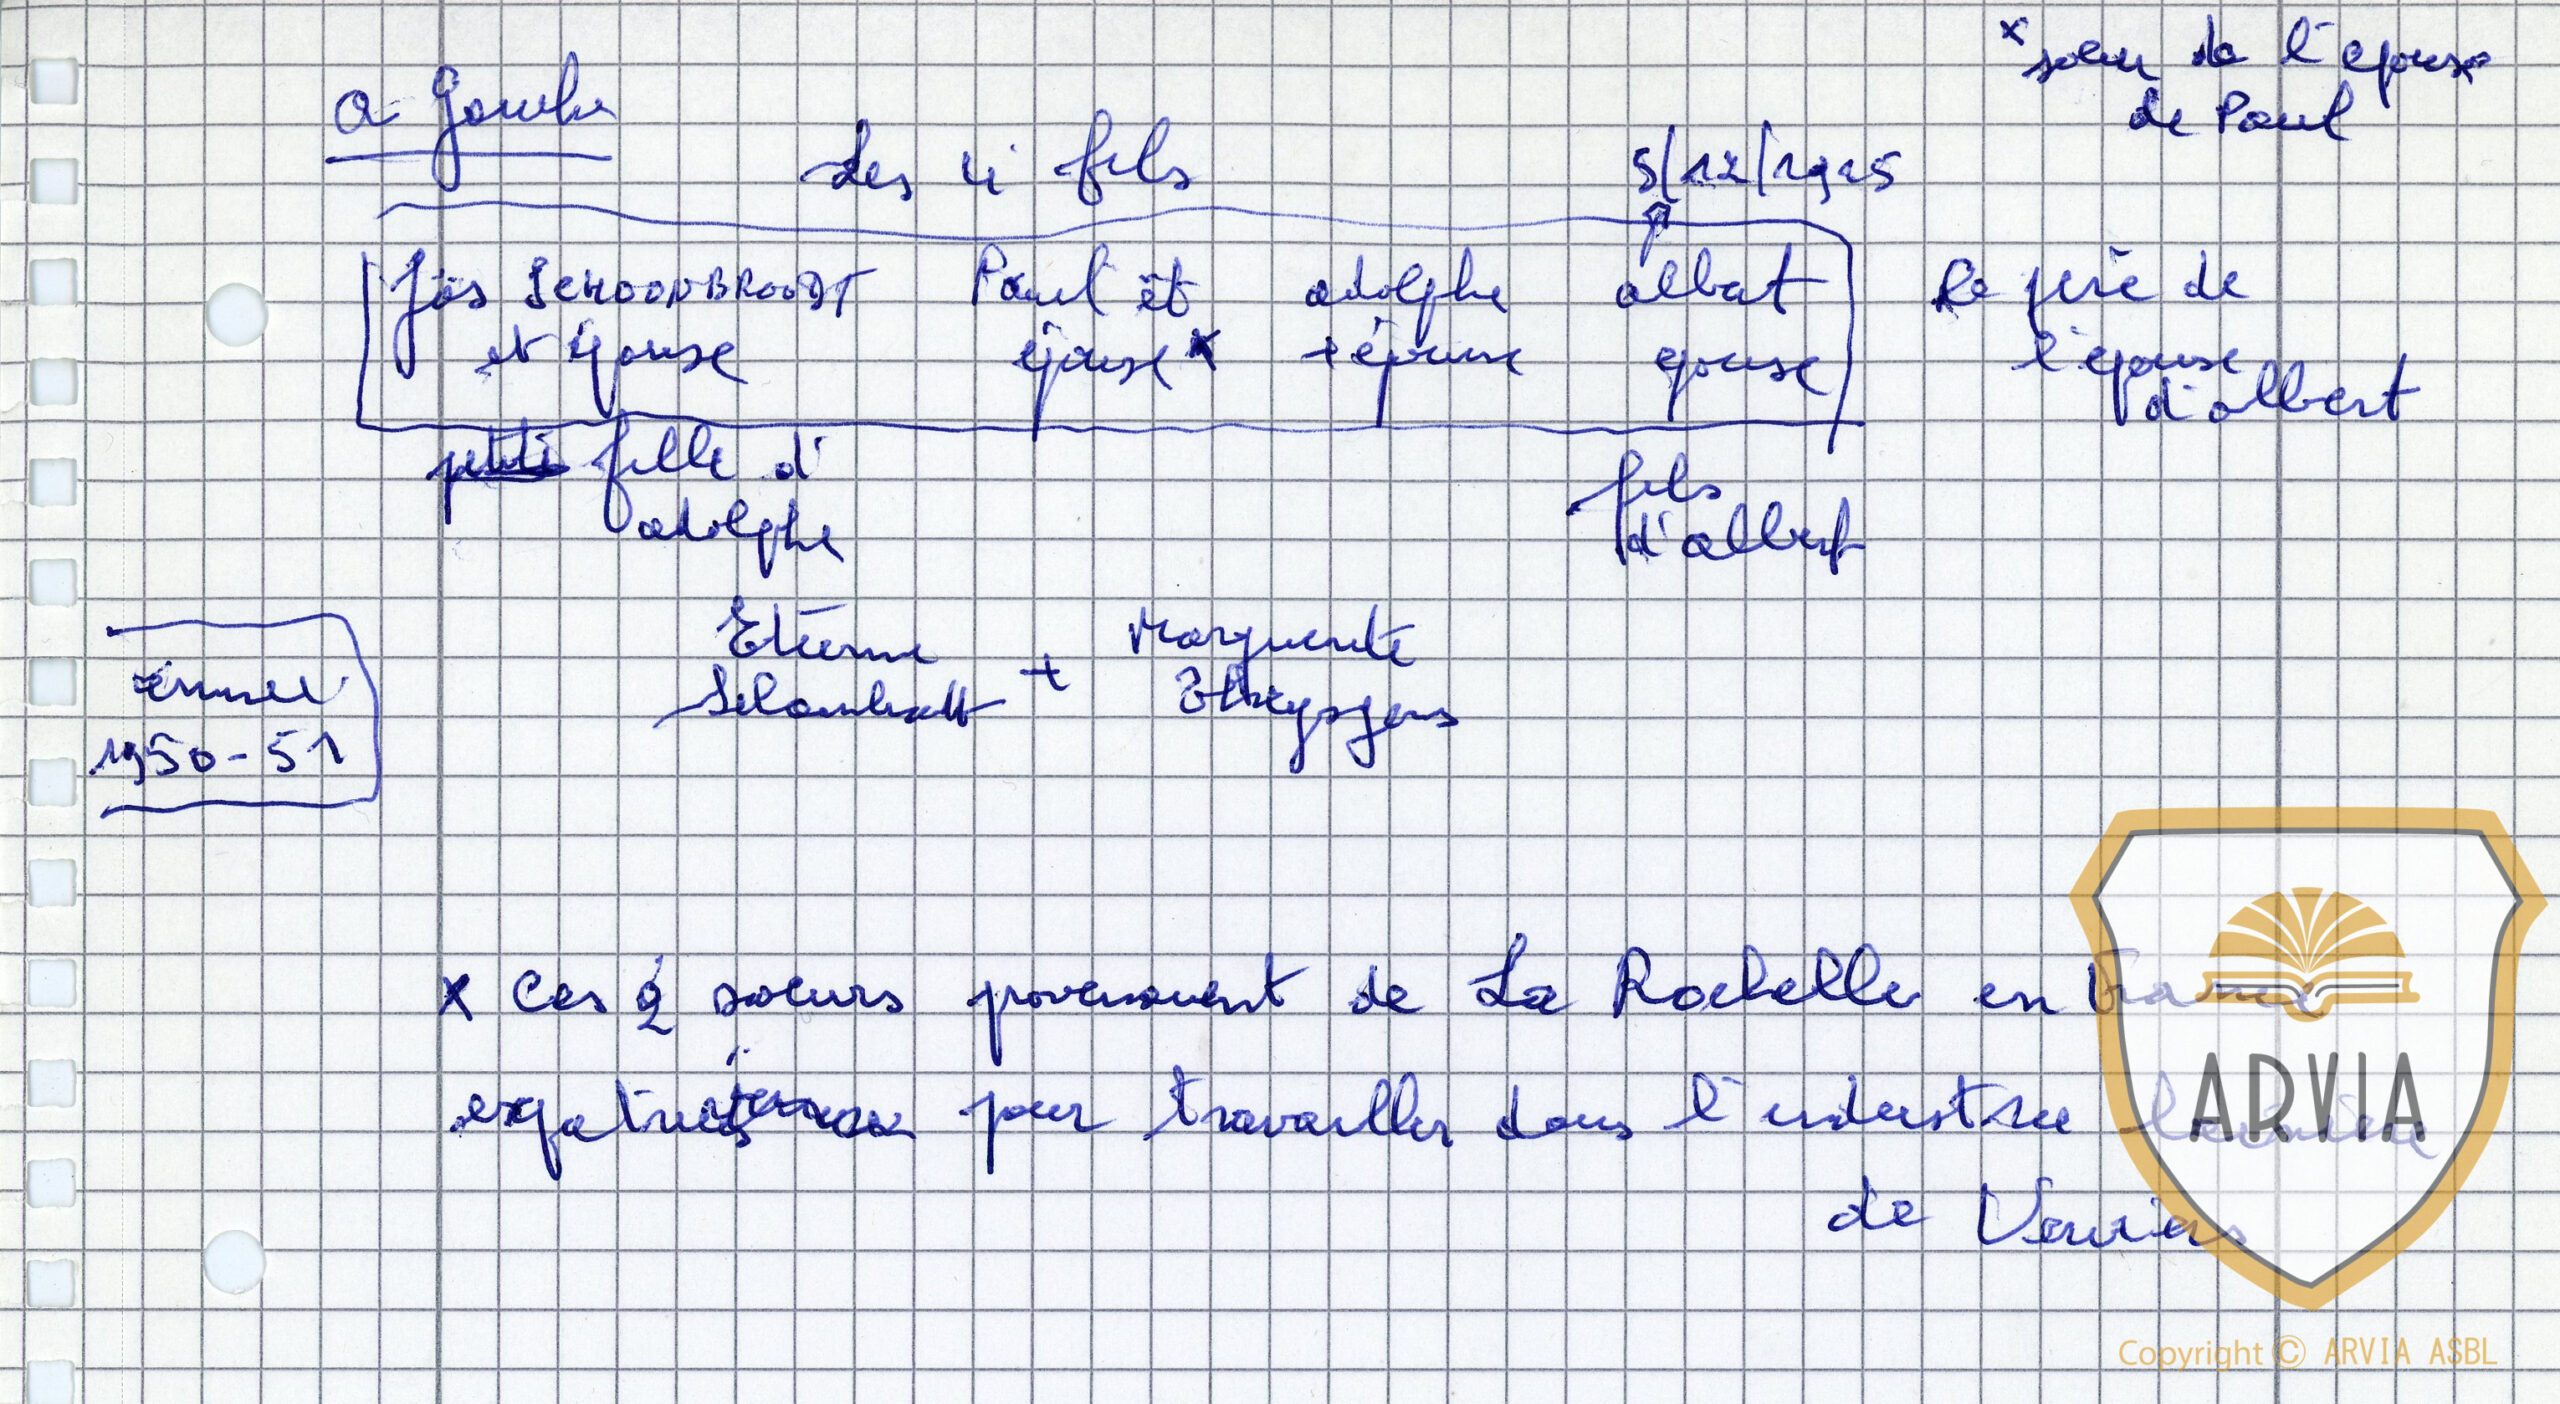 × soeur de l'epouse
de Paul
a
Les 4 fils
5/12/1925
Jos SCHOONBROODT Paul et adolphe albert Le père de
et épouse épouse × + épouse epouse l'épouse
d'albert
petite fille d'
adolphe
fils
d'albert
Etienne + Marguerite
1950-51
× Ces 2 soeurs provenaient de La Rochelle en France
pour travailler dans l'industrie lainière
de Verviers
ARVIA
Copyright © ARVIA ASBL